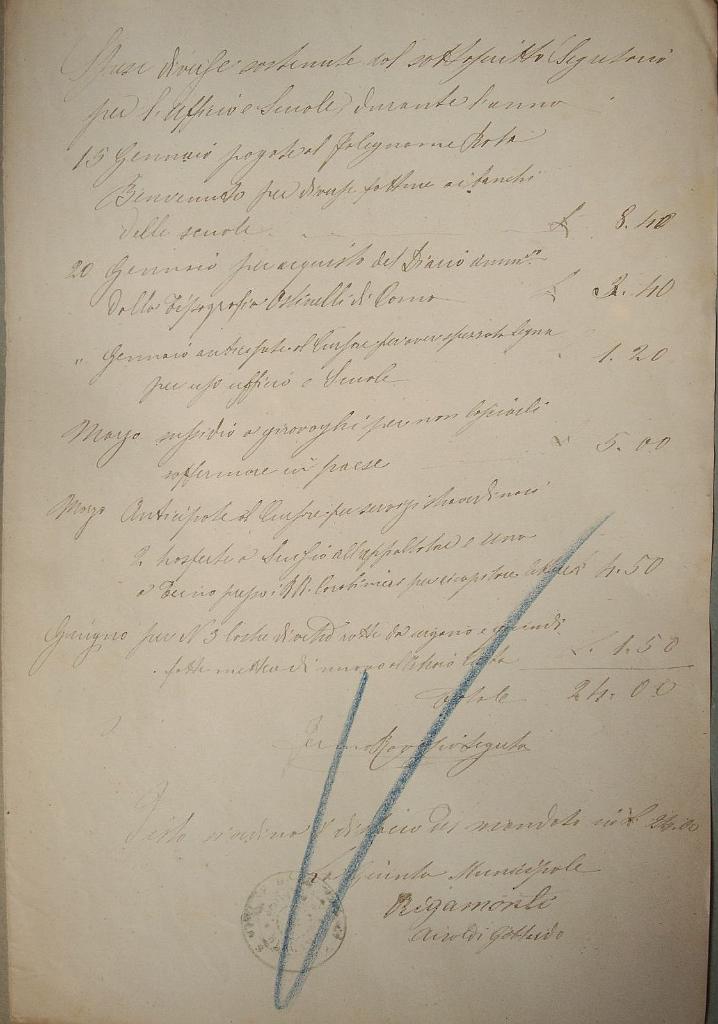 Spese diverse sostenute dal sottoscritto Segretario
per l'Ufficio e Scuole, durante l'anno
15 Gennaio pagate al falegname Rota
Benvenuto per diverse fatture ai banchi
delle scuole £ 8.40
20 Gennaio per acquisto del Diario
dalla Tipografia Ostinelli di Como £ 3.40
" Gennaio anticipate al Cursore per aver spezzata legna
per uso ufficio e Scuole 1.20
Marzo sussidio a girovaghi per non lasciarli
soffermare in paese 5.00
Marzo Anticipate al Cursore per servizi straordinari
2 trasferte a all'appaltatore e una
a presso i RR. Carabinieri per 4.50
Giugno per N 3 lastre di vetro rotte da e quindi
fatte mettere di nuovo £. 1.50
Totale 24.00
Segretº
Visto si ordina il rilascio del mandato in £ 24.00
La Giunta Municipale
Rigamonti
Airoldi